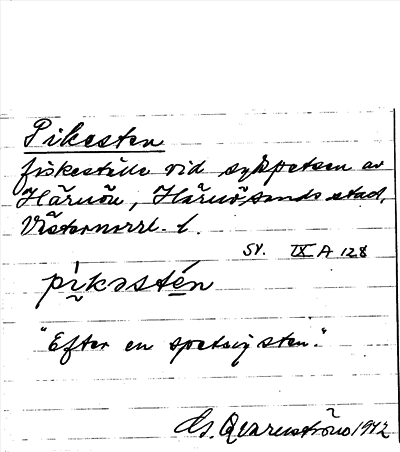 Pikesten
fiskeställe vid sydspetsen av
Härnön, Härnösands stad,
Västernorrl. l.
SV. IX A 128
pi̬kəstén
"Efter en spetsig sten."
G. Qvarnström 1942